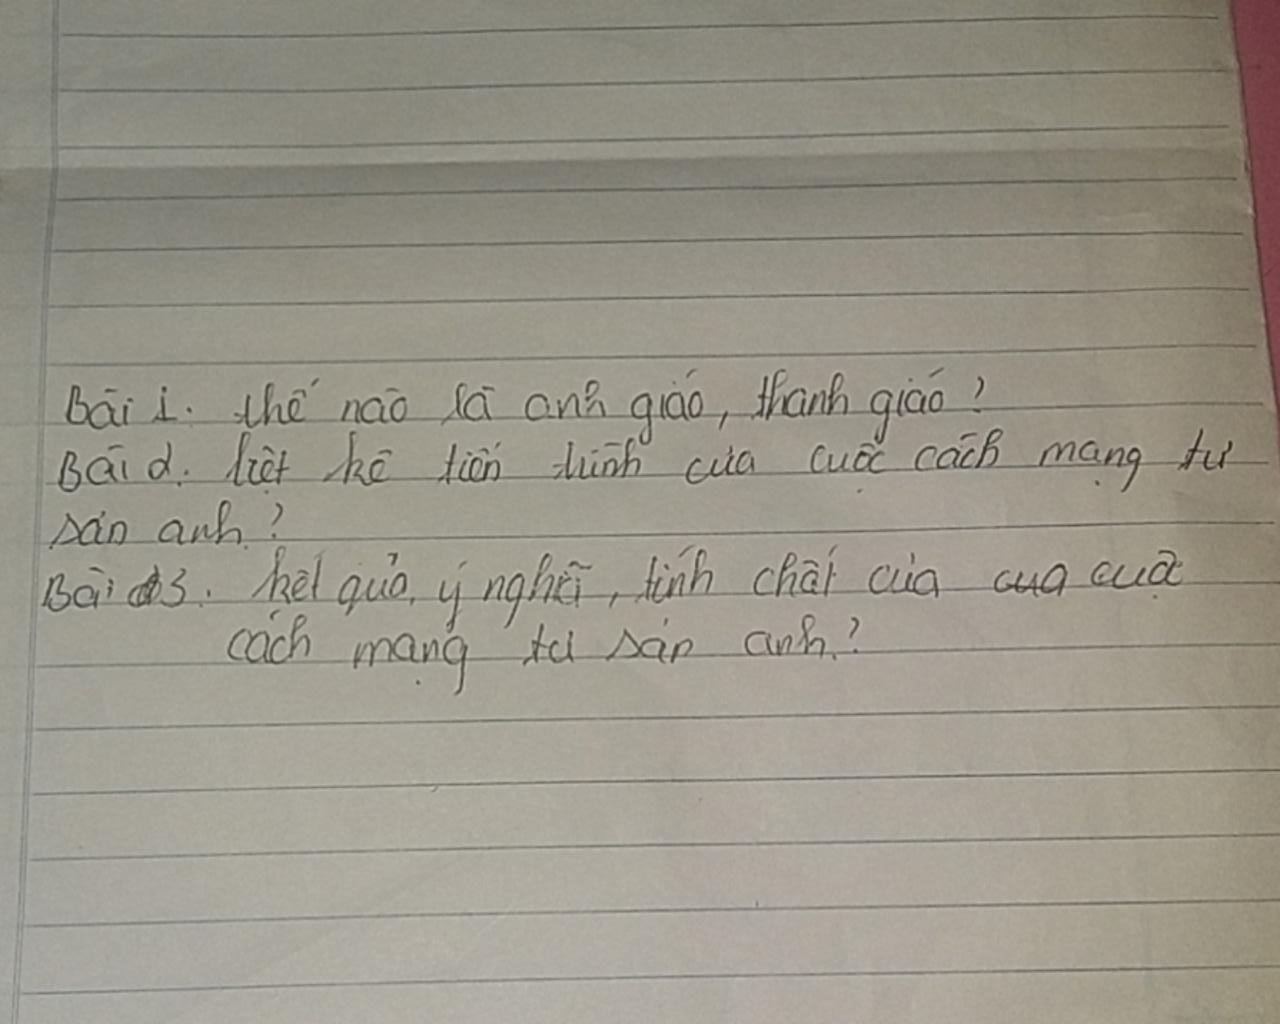 Bài 1. thế nào là anh giáo, thanh giáo?
Bài 2. liệt kê tiến trình của cuộc cách mạng tư
sản anh?
Bài 3. kết quả, ý nghĩ, tính chất của cua cuộc
cách mạng tư sản anh?